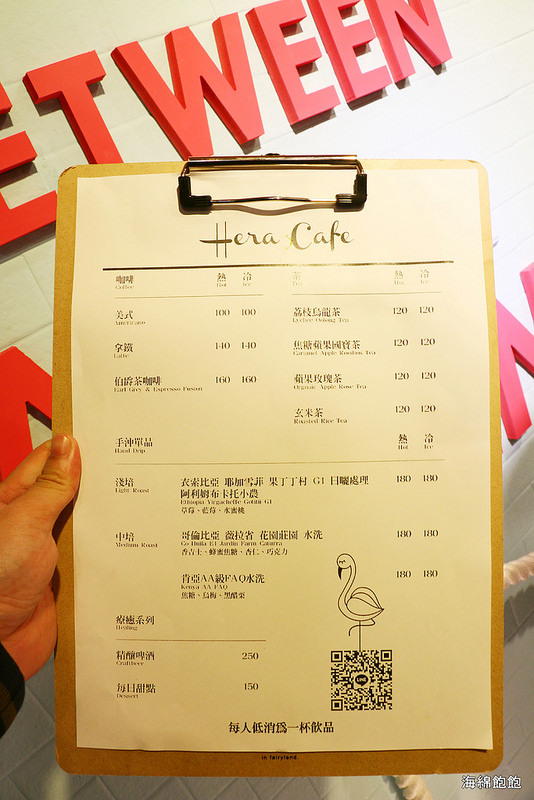 ETWEEN
Hera Cafe
咖啡 熱 冷
Coffee Hot Ice
美式 100 100
Americano
拿鐵 140 140
Latte
伯爵茶咖啡 160 160
Earl Grey & Espresso Fusion
茶 熱 冷
Tea Hot Ice
荔枝烏龍茶 120 120
Lychee Oolong Tea
焦糖蘋果國寶茶 120 120
Caramel Apple Rooibos Tea
蘋果玫瑰茶 120 120
Orgnaic Apple Rose Tea
玄米茶 120 120
Roasted Rice Tea
手沖單品 熱 冷
Hand Drip Hot Ice
淺培 衣索比亞 耶加雪菲 果丁丁村 G1 日曬處理 180 180
Light Roast 阿利姆布卡托小農
Ethiopia Yirgacheffe Gotiti G1
草莓、藍莓、水蜜桃
中培 哥倫比亞 薇拉省 花園莊園 水洗 180 180
Medium Roast Co Huila El Jardin Farm Caturra
香吉士、蜂蜜焦糖、杏仁、巧克力
肯亞AA級FAQ水洗 180 180
Kenya AA FAQ
焦糖、烏梅、黑醋栗
療癒系列
Healing
精釀啤酒 250
Craftbeer
每日甜點 150
Dessert
LINE
每人低消為一杯飲品
in fairyland
海綿飽飽